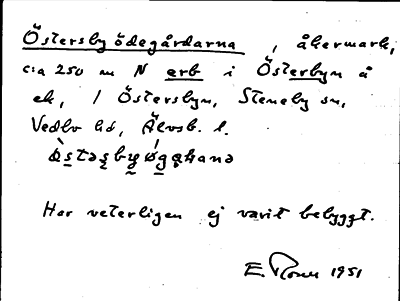 Östersby ödegårdarna, åkermark,
c:a 250 m N erb i Österbyn å
ek, / Östersbyn, Steneby sn,
Vedbo hd, Älvsb. l.
Har veterligen ej varit bebyggt.
E. 1951